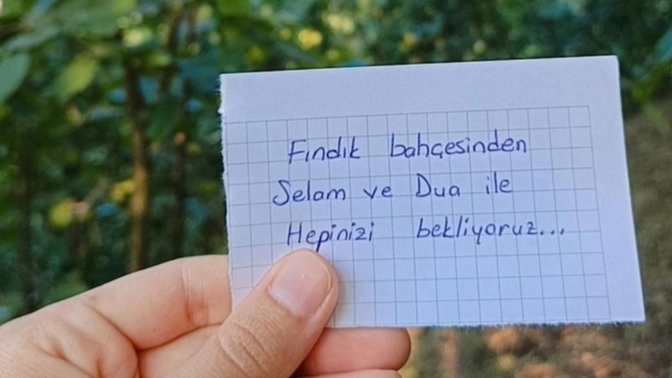 Fındık bahçesinden
Selam ve Dua ile
Hepinizi bekliyoruz...